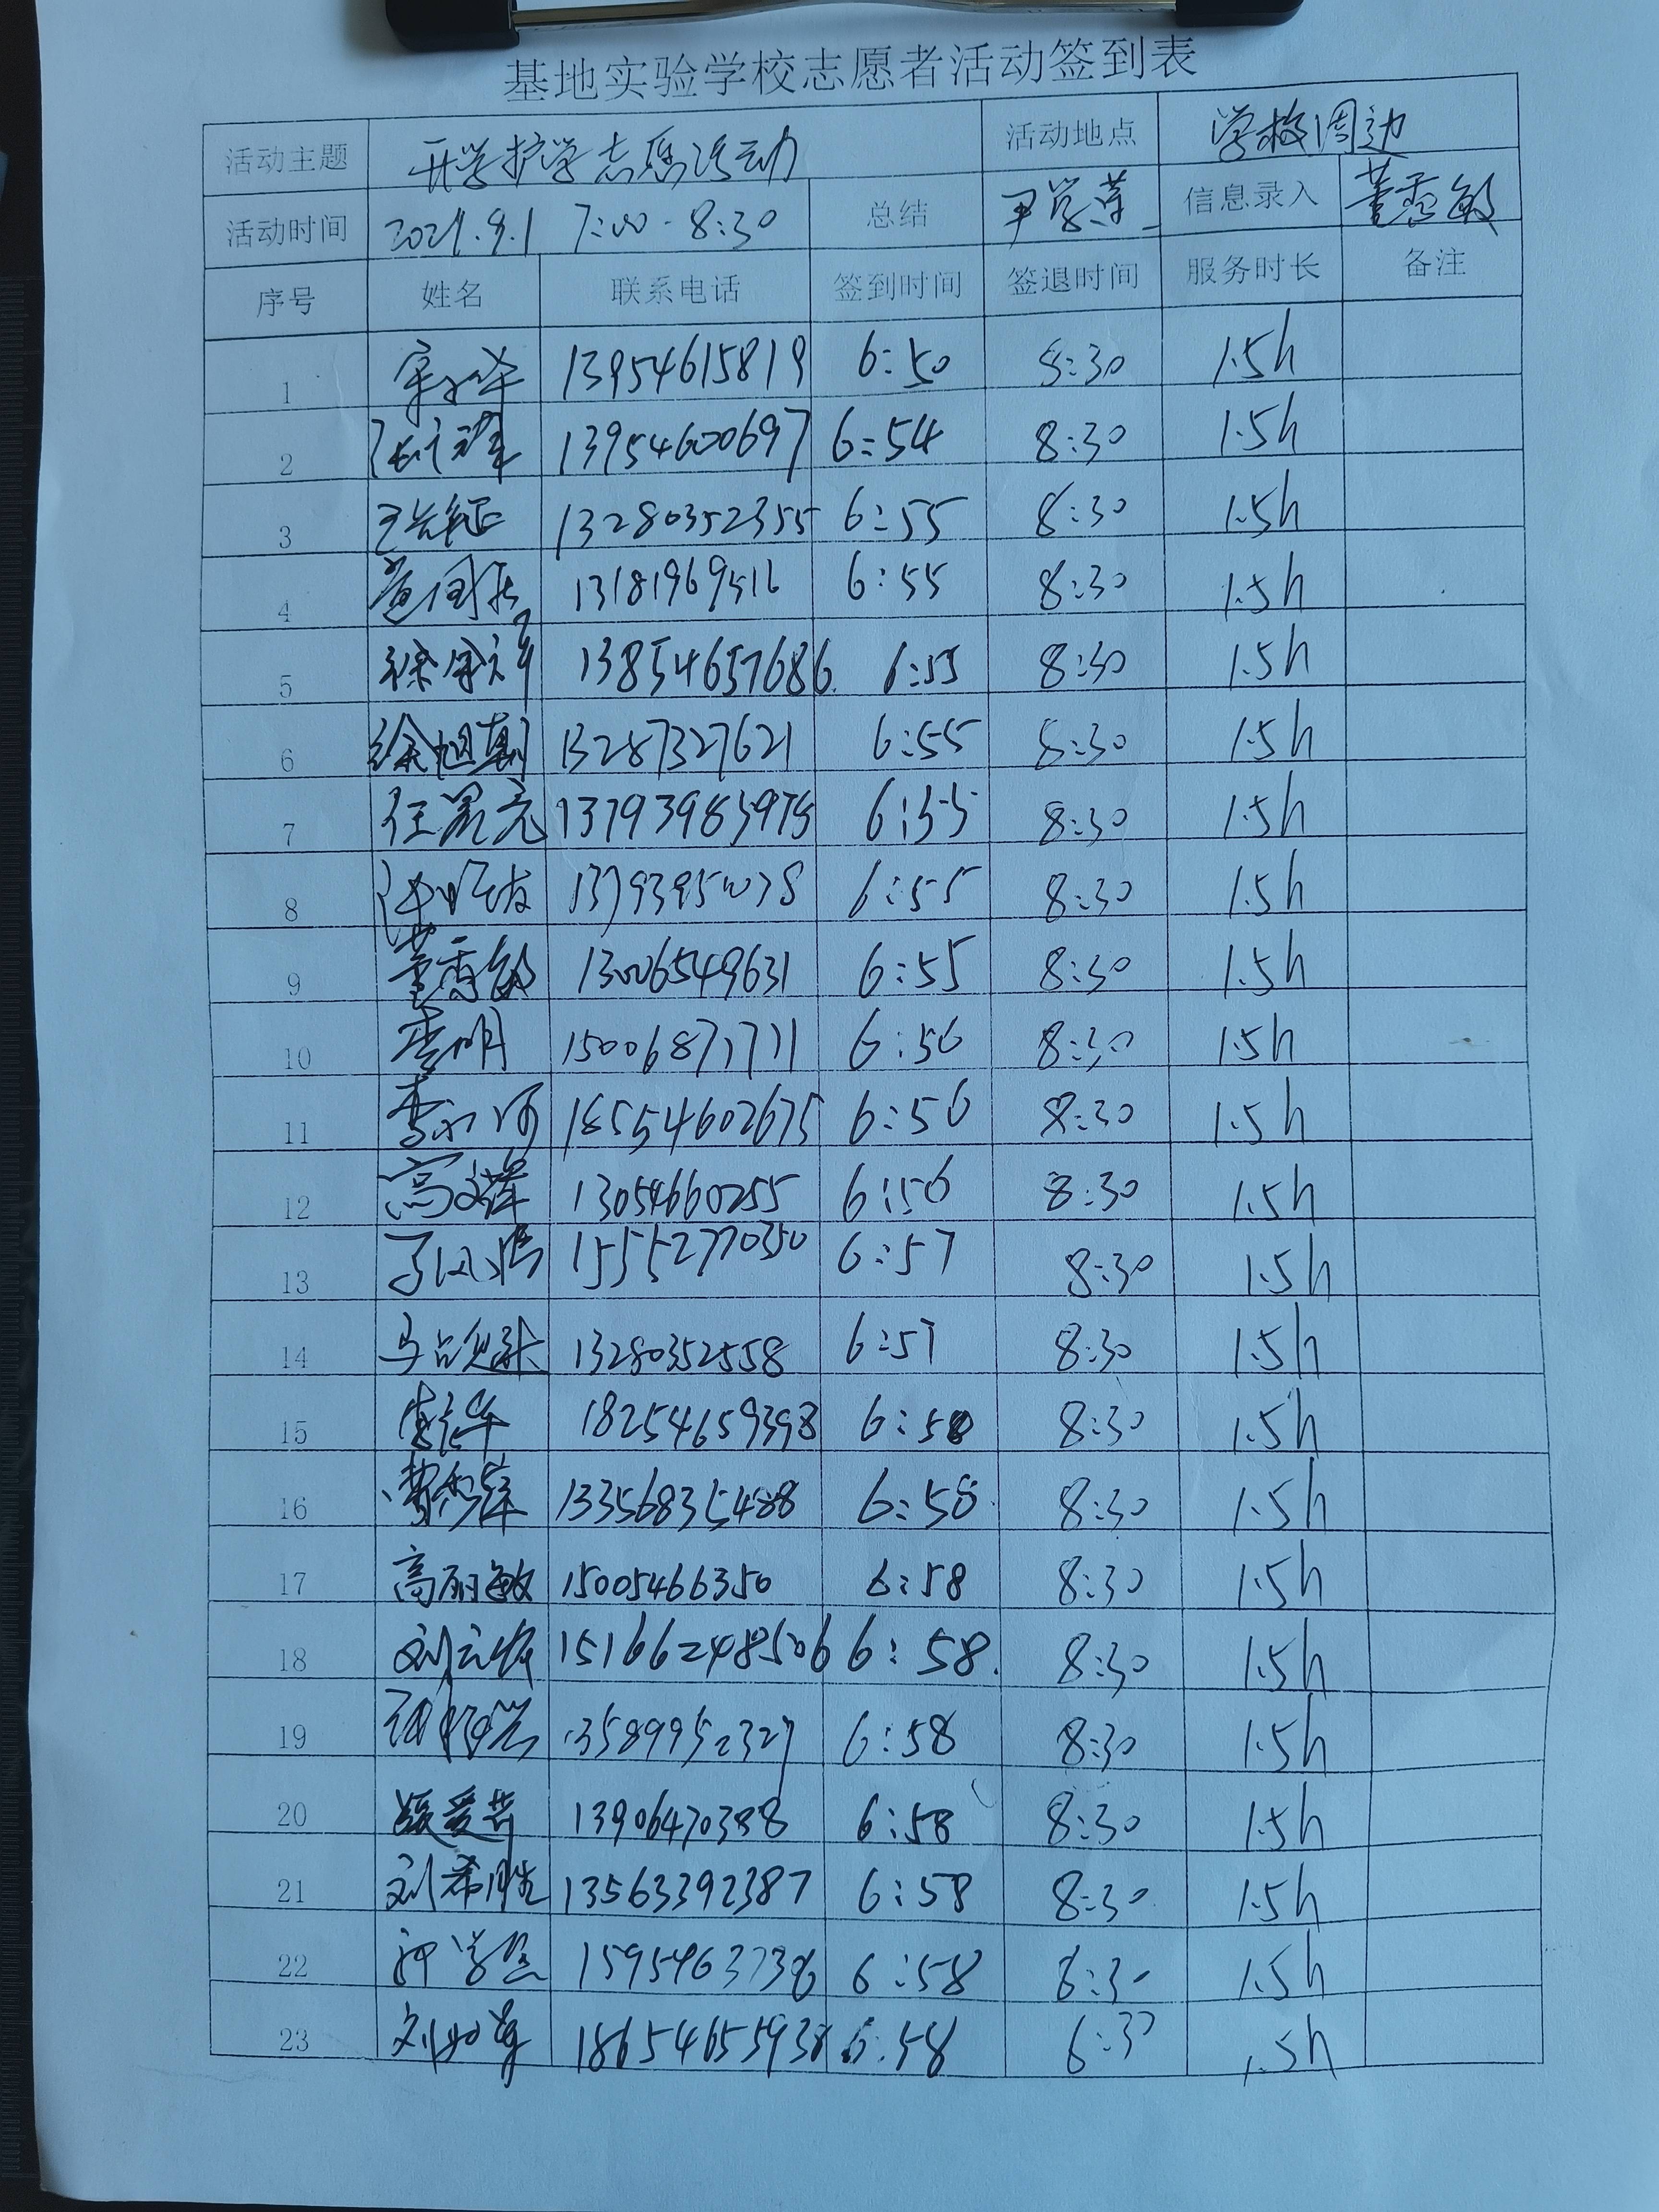 基地实验学校志愿者活动签到表
活动主题 开学护学志愿活动 活动地点 学校周边
活动时间 2021.9.1 7:00-8:30 总结 尹学萍 信息录入 董雪敏
序号 姓名 联系电话 签到时间 签退时间 服务时长 备注
1 13954615819 6:50 8:30 1.5h
2 13954600697 6:54 8:30 1.5h
3 13280352355 6:55 8:30 1.5h
4 13181969516 6:55 8:30 1.5h
5 13854657686 6:55 8:30 1.5h
6 徐旭期 13287327621 6:55 8:30 1.5h
7 13793985975 6:55 8:30 1.5h
8 6:55 8:30 1.5h
9 董雪敏 13006549631 6:55 8:30 1.5h
10 李明 15006871711 6:56 8:30 1.5h
11 李永河 18554602675 6:56 8:30 1.5h
12 高文峰 13054660255 6:56 8:30 1.5h
13 15552770350 6:57 8:30 1.5h
14 13280352558 6:57 8:30 1.5h
15 18254659398 6:58 8:30 1.5h
16 13356835488 6:58 8:30 1.5h
17 高丽敏 15005466350 6:58 8:30 1.5h
18 15166248506 6:58 8:30 1.5h
19 13589952327 6:58 8:30 1.5h
20 13906470388 6:58 8:30 1.5h
21 刘希胜 13563392387 6:58 8:30 1.5h
22 1595463738 6:58 8:30 1.5h
23 18654655938 6:58 1.5h